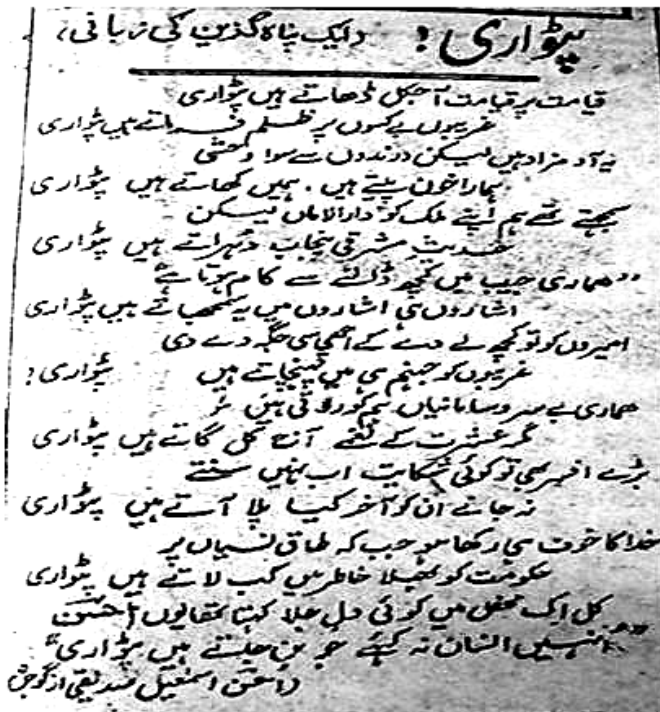 پٹواری! (ایک پناہ گزین کی زبانی)
قیامت پر قیامت آجکل ڈھاتے ہیں پٹواری
غریبوں بے کسوں پر ظلم فرماتے ہیں پٹواری
یہ آدمزاد ہیں لیکن درندوں سے سوا وحشی
ہمارا خون پیتے ہیں . ہمیں کھاتے ہیں پٹواری
سمجھتے تھے ہم اپنے ملک کو دارالاماں لیکن
حدیثِ مشرقی پنجاب دہراتے ہیں پٹواری
"ہماری جیب میں کچھ ڈالنے سے کام ہوتا ہے"
اشاروں ہی اشاروں میں یہ سمجھاتے ہیں پٹواری
امیروں کو تو کچھ لے دے کے اچھی سی جگہ دے دی
غریبوں کو جہنم ہی میں پہنچاتے ہیں پٹواری!
ہماری بے سروسامانیاں ہم کو رلاتی ہیں
مگر عشرت کے نغمے آج کل گاتے ہیں پٹواری
بڑے افسر بھی تو کوئی شکایت اب نہیں سنتے
نہ جانے ان کو آخر کیا پلا آتے ہیں پٹواری
خدا کا خوف ہی رکھا ہو جب کہ طاق نسیاں پر
حکومت کو بھلا خاطر میں کب لاتے ہیں پٹواری
کل اک محفل میں کوئی دل جلا کہتا تھا یوں احسن
"انہیں انسان نہ کہئے جو بن جاتے ہیں پٹواری"
(احسن اسمٰعیل صدیقی از گوجرہ)